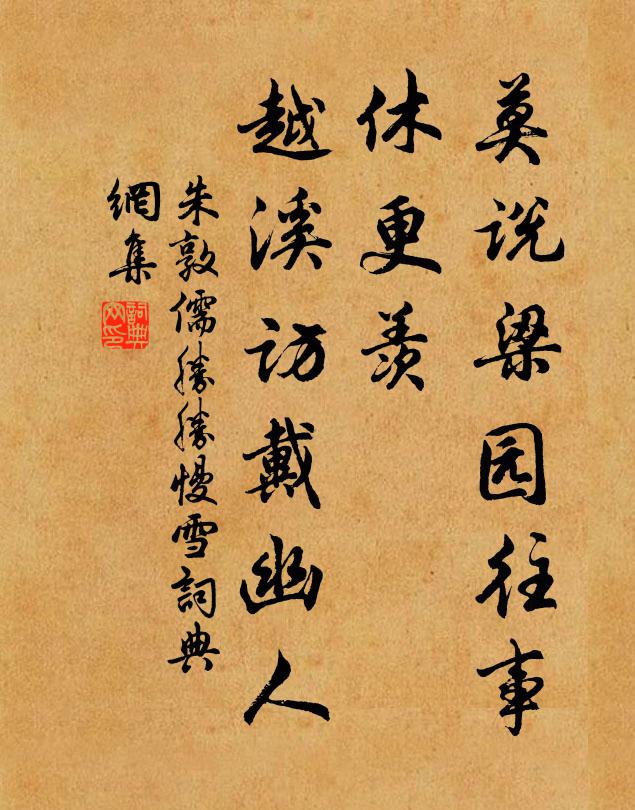 莫说梁园往事
休更羡
越溪访戴幽人
朱敦儒勝勝慢雪詞典
網集
詞典